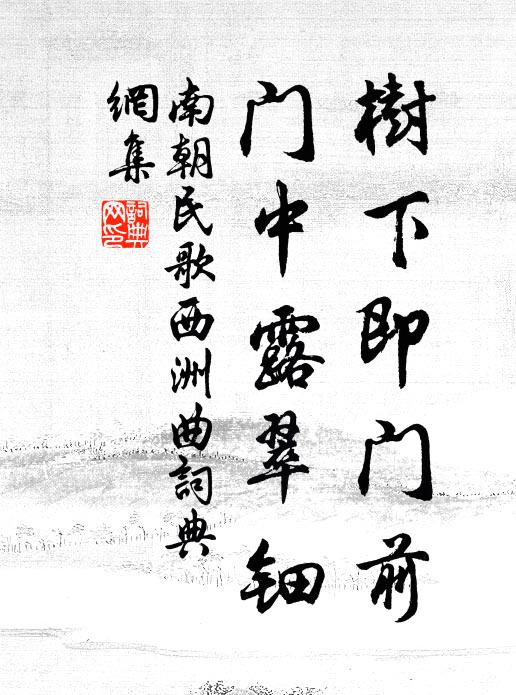 樹下即门前
门中露翠钿
南朝民歌西洲曲詞典
網集
詞典
网印